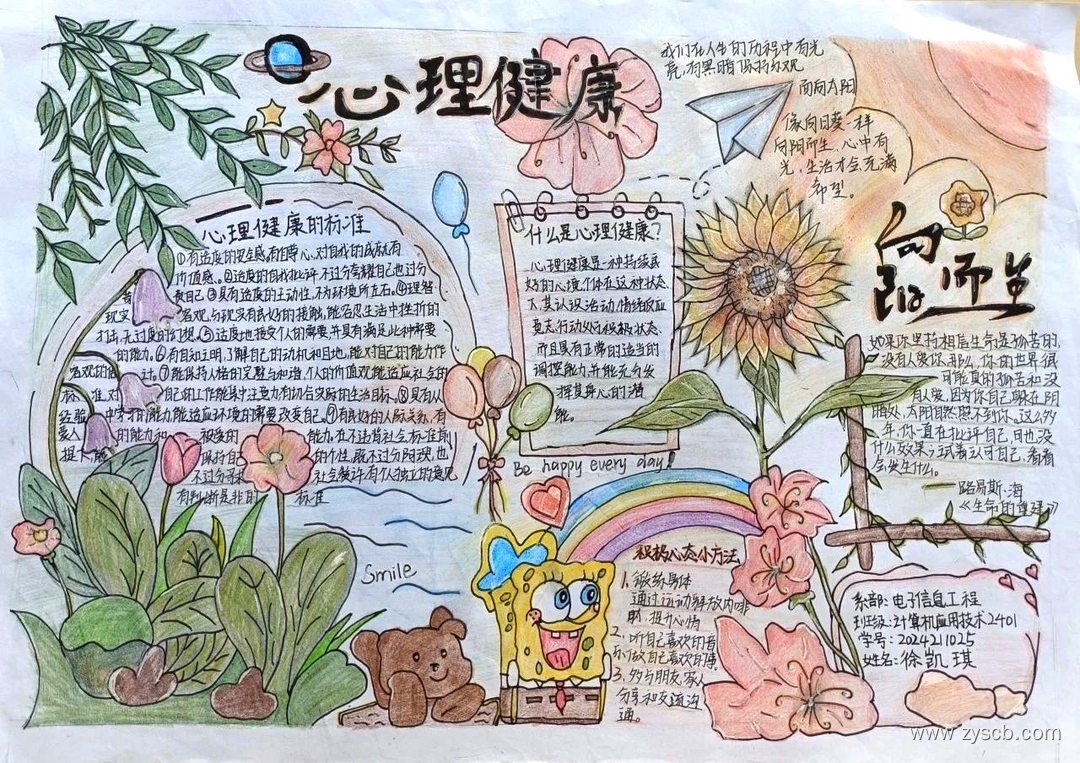 心理健康
我们在人生的历程中有光
亮,有黑暗保持乐观
面向太阳
像向日葵一样
向阳而生,心中有
光,生活才会充满
希望。
向阳而生
心理健康的标准
①有适度的安全感,有自尊心,对自我的成就有
价值感。②适度的自我批评,不过分夸耀自己也过分
责自己③具有适度的主动性,不为环境所左右。④理智
现实 客观,与现实有良好的接触,能容忍生活中挫折的
打击,无过度的幻想。⑤适度地接受个人的需要,并具有满足此种需要
的能力。⑥有自知之明,了解自己的动机和目地,能对自己的能力作
客观的估计。⑦能保持人格的完整与和谐,个人的价值观能适应社会的
标准,对自己的工作能集中注意力有切合实际的生活目标。⑧具有从
经验中学习的能力,能适应环境的需要改变自己。⑨有良好的人际关系,有
爱人的能力和被爱的能力。在不违背社会标准前
提下能保持自己的个性,既不过分阿谀,也
不过分寻求社会赞许有个人独立的意见
有判断是非的标准
什么是心理健康?
心理健康是一种持续良
好的心境,个体在这种状态
下,其认识活动,情绪反应
意志,行动处于积极状态
而且具有正常的适当的
调控能力,并能充分发
挥其身心的潜
能。
Be happy every day!
如果你坚持相信生命是孤苦的,
没有人爱你,那么,你的世界很
可能真的孤苦和没
有人爱,因为你自己躲在阴
暗处,太阳自然照不到你。这么多
年,你一直在批评自己,但也没
什么效果;试着认同自己,看看
会发生什么。
——路易斯·海
《生命的重建》
Smile
积极心态小方法
1、锻练身体
通过运动释放内啡
肽,提升心情
2、听自己喜欢的音
乐做自己喜欢的事
3、多与朋友,家人
分享和交流沟
通。
系部:电子信息工程
班级:计算机应用技术2401
学号:2024211025
姓名:徐凯琪
www.zyscb.com